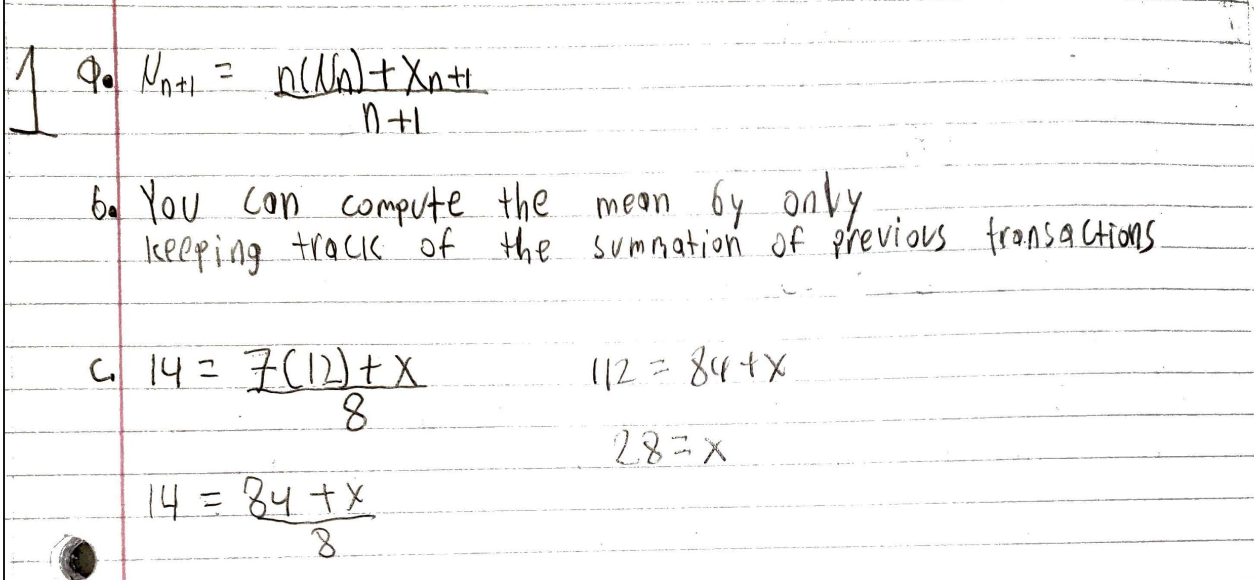 1 a. N_{n+1} = \frac{n(N_n) + X_{n+1}}{n+1}
b. You can compute the mean by only
keeping track of the summation of previous transactions
c. 14 = \frac{7(12) + x}{8}
112 = 84 + x
28 = x
14 = \frac{84 + x}{8}